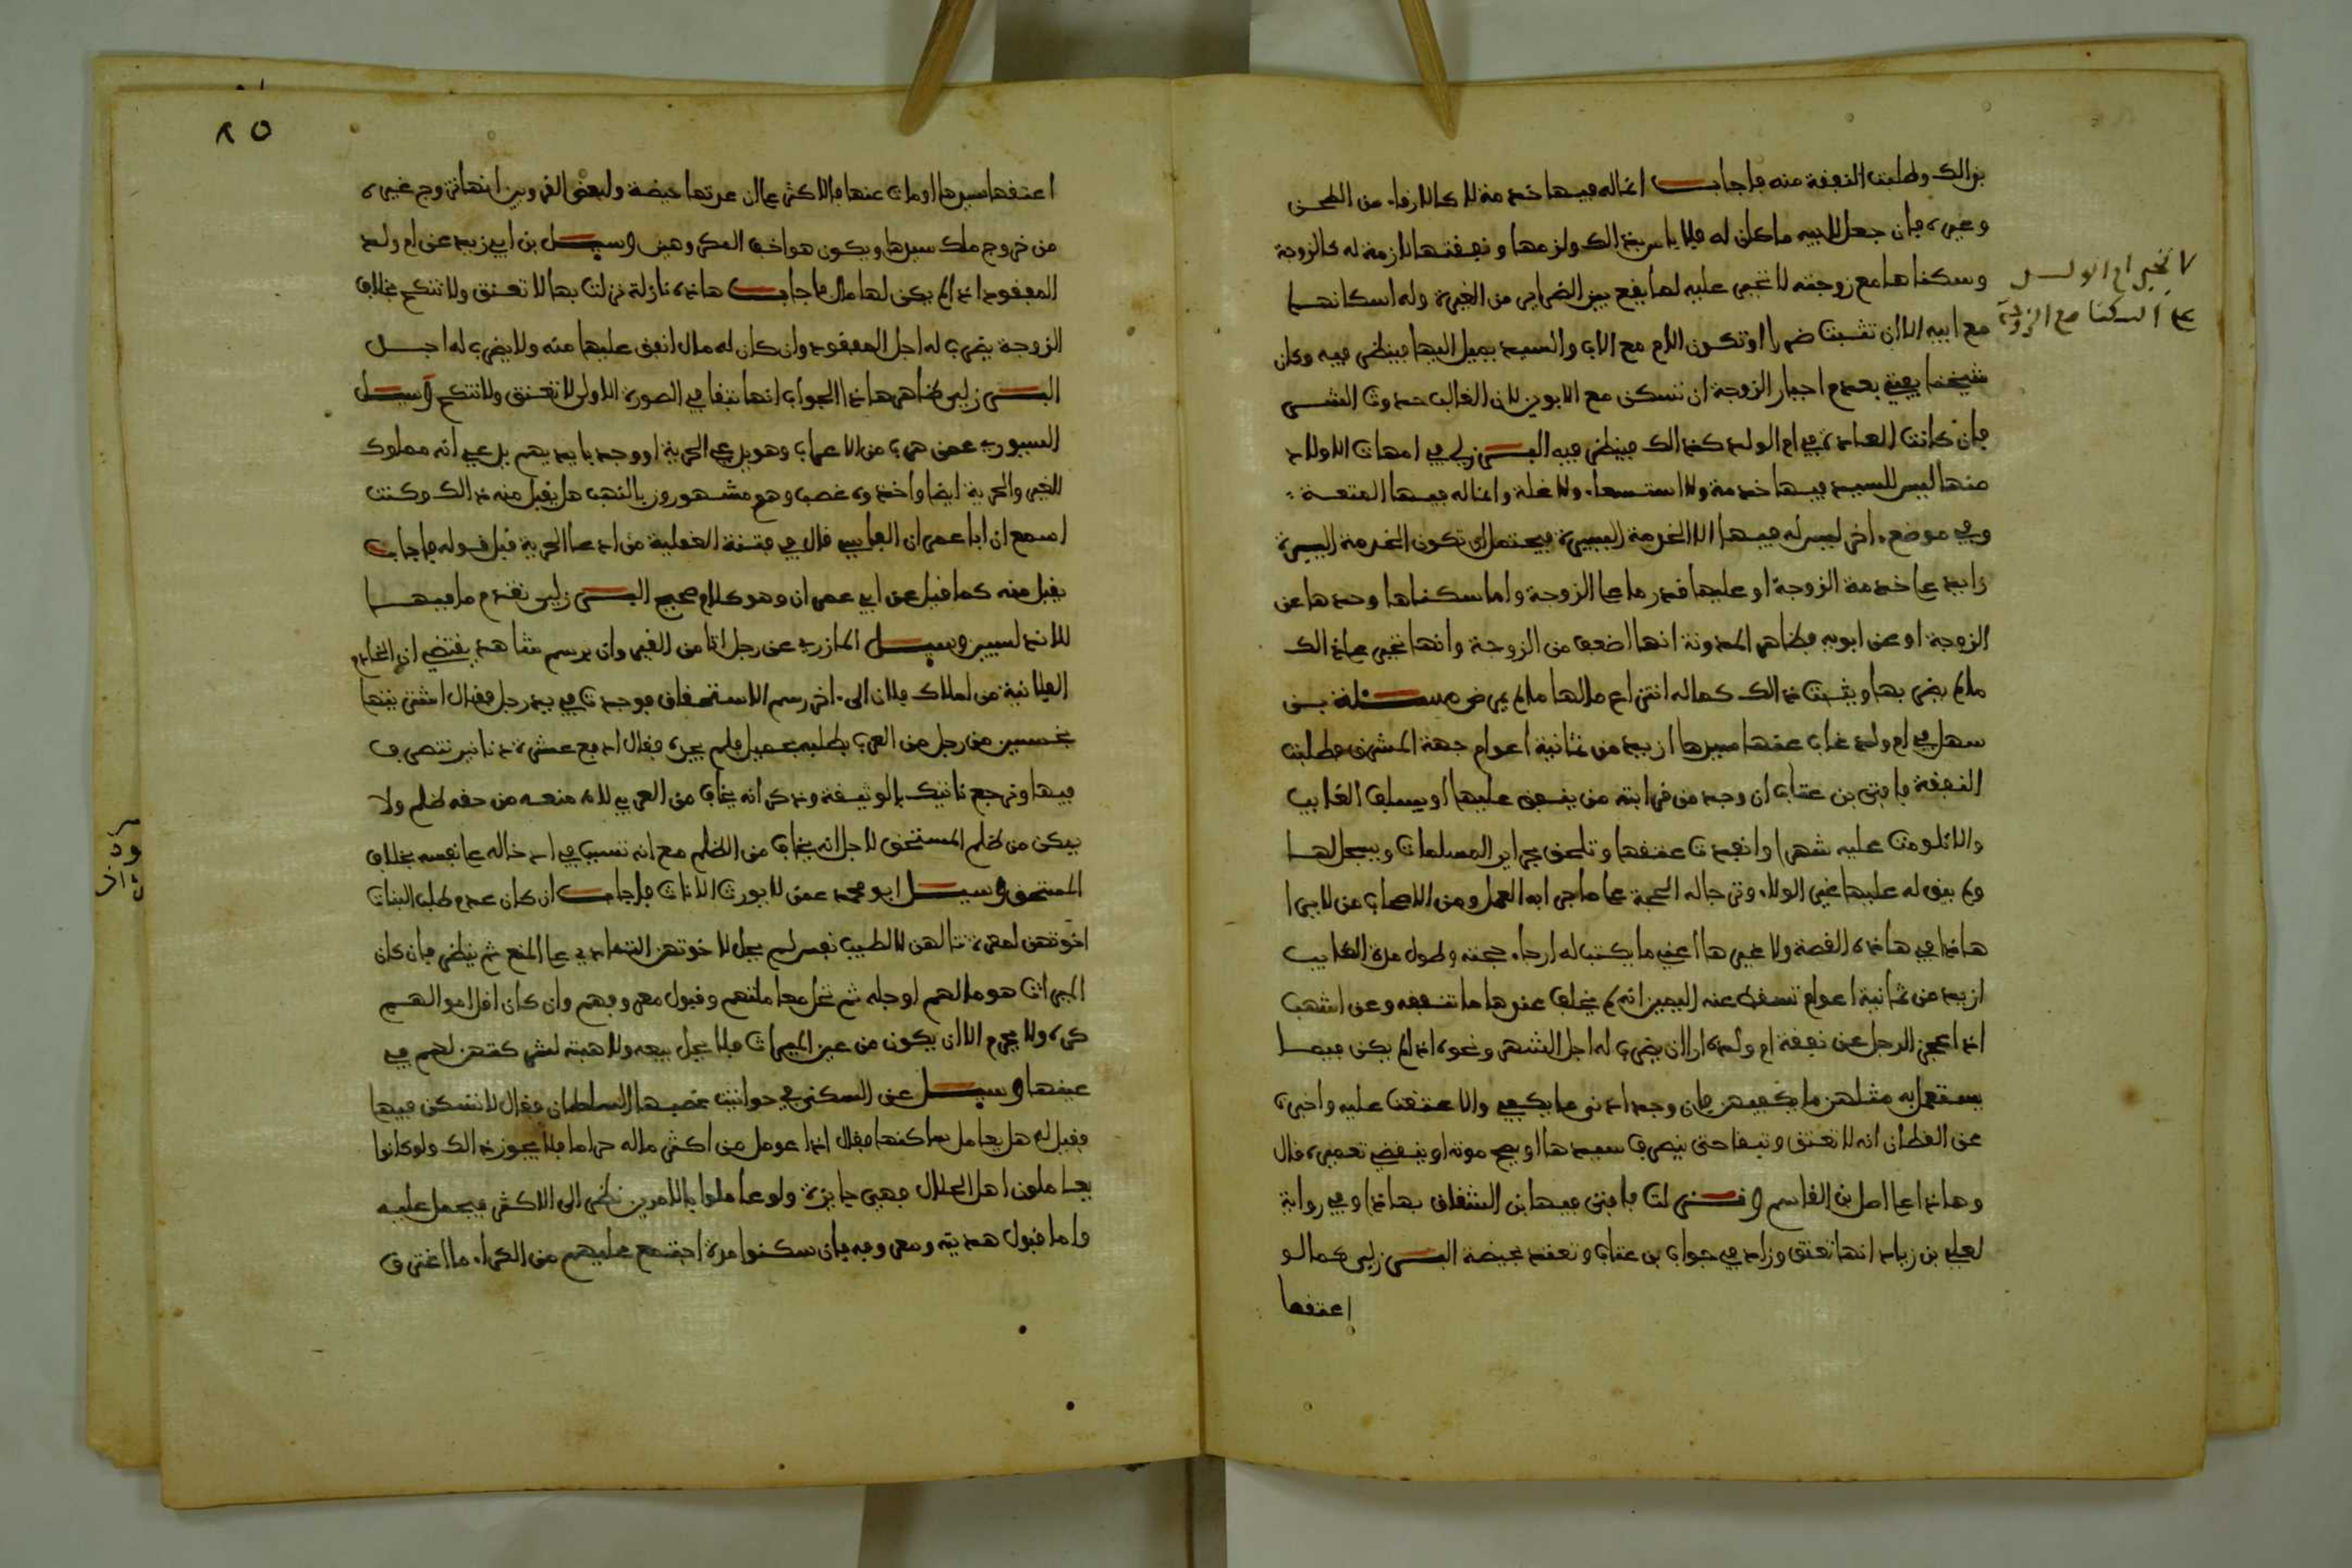 بذالك وطلبت النفقة منه فاجاب انما له فيها خدمة لا كالارفاء من الطحن
وغيره فان جعل لابيه ماكان له فلا باس بذالك ولزمها ونفقتها لازمة له كالزوجة
وسكناها مع زوجته لا تجبر عليه لما يقع بين الضراير من الغيرة وله اسكانهما
مع ابيه الا ان تثبت ضررا او تكون الام مع الاب والسيد يميل اليها فينظر فيه وكان
شيخنا يفتي بعدم اجبار الزوجة ان تسكن مع الابوين لان الغالب حدوث الشر
فان كانت العادة في ام الولد كذالك فينظر فيه البرزلي في امهات الاولاد
منها ليس للسيد فيها خدمة ولا استسعاء ولا غلة وانما له فيها المتعة
وفي موضع اخر ليس له فيها الا الخدمة اليسيرة فيحتمل ان تكون الخدمة اليسيرة
زايد على خدمة الزوجة او عليها قدر ما على الزوجة واما سكناها وحدها عن
الزوجة او عن ابويه فظاهر المدونة انها اضعف من الزوجة وانها تجبر على ذالك
مالم يضر بها ويثبت ذالك كما له انتزاع مالها مالم يمرض مسئلة بن
سهل في ام ولد غاب عنها سيدها ازيد من ثمانية اعوام جهة المشرق وطلبت
النفقة فافتى بن عتاب ان وجد من قرابته من ينفق عليها او يسلف الغايب
والا تلومت عليه شهرا وانفدت عتقها وتلحق بحراير المسلمات ويسجل لها
ولم يبق له عليها غير الولاء وترجا له الحجة على ما جرى به العمل ومن الاصحاب من لا يرا
هاذا في هاذه القصة ولا غيرها اعني ما يكتب له ارجاء حجته وطول مدة الغايب
ازيد من ثمانية اعوام تسقط عنه اليمين انه لم يخلف عندها ما تنفقه وعن اشهب
اذا عجز الرجل عن نفقة ام ولده ارا ان يضرب له اجل الشهر ونحوه اذا لم يكن فيما
يستعمل به مثلهن ما يكفيهن فان وجد ادنى ما يكفي والا عتقت عليه واخبره
عن القطان انه لا تعتق وتبقا حتى ينصرف سيدها او يصح موته او ينقضي تعميره قال
وهاذا على اصل بن القاسم ونزلت فافتى فيها بن الشقاق بهاذا وفي رواية
لعلي بن زياد انها تعتق وزاد في جواب بن عتاب وتعتد بحيضة البرزلي كما لو
اعتقها
لا تجبر ام الولد
على السكنا مع الزوجة
٨٥
اعتقها سيدها او مات عنها فالاكثر على ان عدتها حيضة ولبعض القرويين انها تتزوج غيره
من خروج ملك سيدها ويكون هو اخف المكروهين وسيل بن ابي زيد عن ام ولد
المفقود اذا لم يكن لها مال فاجاب هاذه نازلة نزلت بها لا تعتق ولا تنكح بخلاف
الزوجة يضرب له اجل المفقود وان كان له مال انفق عليها منه ولا يضرب له اجل
البرزلي ظاهر هاذا الجواب انها تبقا في الصورة الاولى لا تعتق ولا تنكح وسيل
السيوري عمن هرب من الاعراب وهو يدعي الحرية او وجد بايديهم يدعي انه مملوك
للغير والحرية ايضا واخذوه غصب وهم مشهورون بالنهب هل يقبل منه ذالك وكنت
اسمع ان ابا عمران الفاسي قال في فتنة الصقلية من ادعا الحرية قبل قوله فاجاب
يقبل منه كما قيل عن ابي عمران وهو كلام صحيح البرزلي تقدم ما فيها
للاندلسيين وسيل المازري عن رجل اتا من القيروان برسم شاهد يقتضي ان الخادم
الفلانية من املاك فلان الى اخر رسم الاستحقاق فوجدت في يد رجل فقال اشتريتها
بخمسين من رجل من العرب يطلبه بحميل فلم يجده فقال ادفع عشرة دنانير تتصرف
فيها وترجع تاتيك بالوثيقة وذكر انه يخاف من العربي لانه منعه من حقه ظلم ولا
يمكن من ظلم المستحق لاجل انه يخاف من الظلم مع انه تسبب في ادخاله على نفسه بخلاف
المستحق وسيل ابو محمد عمن لا يورث الاناث فاجاب ان كان عدم طلب البنات
اخوتهن لمعرة تنالهن لا لطيب نفس لم يحل لاخوتهن التمادي على المنع ثم ينظر فان كان
الميراث هو مالهم او جله ثم تحل معاملتهم وقبول معروفهم وان كان اقل اموالهم
كره ولا يحرم الا ان يكون من عين الميراث فلا يحل بيعه ولا هبته لشركتهن لهم في
عينها وسيل عن السكنى في حوانيت غصبها السلطان فقال لا تسكن فيها
فقيل له هل يعامل ساكنها فقال اذا عومل من اكثر ماله حراما فلا يجوز ذالك ولو كانوا
يعاملون اهل الحلال فهي جايزة ولو عاملوا بالامرين نظر الى الاكثر فيحمل عليه
واما قبول هديته ومعروفه فان سكنوا مرة اجتمع عليهم من الكراء ما اغترق